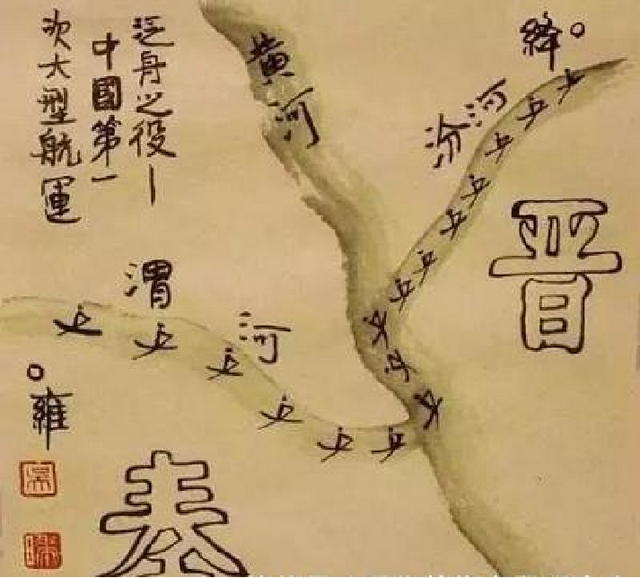 泛舟之役—
中國第一
次大型航運
黄河
汾河
絳
晋
渭河
雍
秦